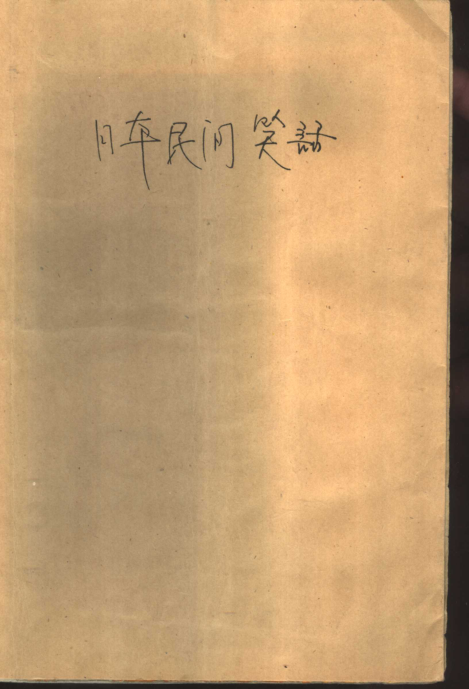 日本民间笑話